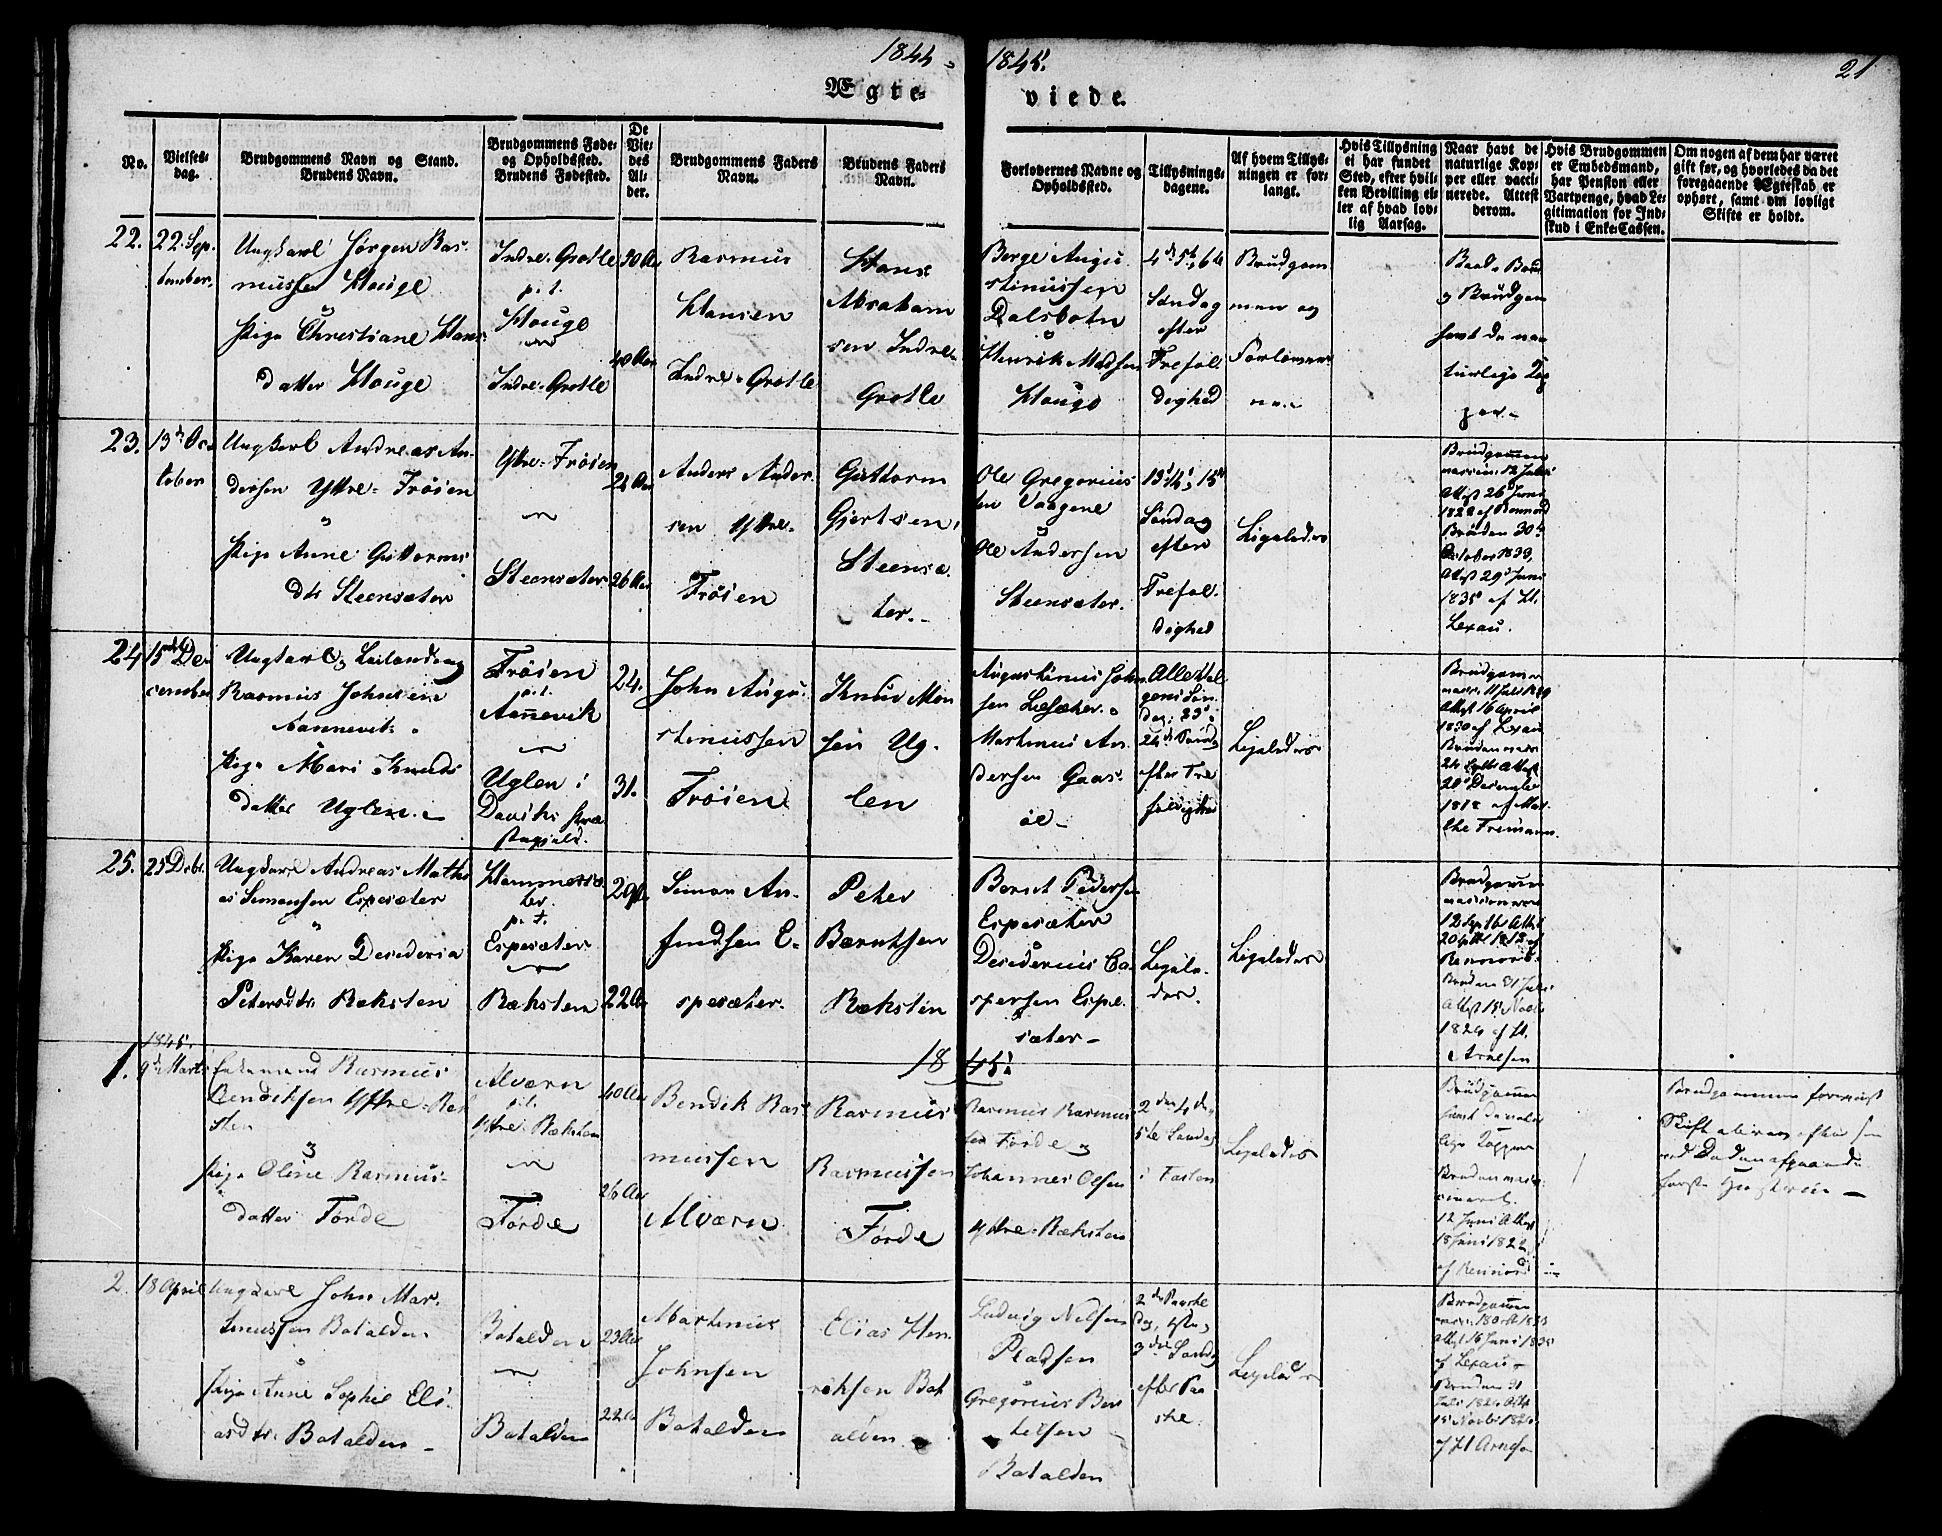 1844
1845.
21
Ægte-
viede.
No.
Vielses-
dag.
Brudgommens Navn og Stand.
Brudens Navn.
Brudgommens Føde-
og Opholdssted.
Brudens Fødested.
De
Vie-
des
Al-
der.
Brudgommens Faders
Navn.
Brudens Faders
Navn.
Forlovernes Navne og
Opholdssted.
Tillysnings-
dagene.
Af hvem Tillys-
ningen er for-
langt.
Hvis Tillysning
ei har fundet
Sted, efter hvil-
ken Bevilling el-
ler af hvad lov-
lig Aarsag.
Naar havt de
naturlige Kop-
per eller vacci-
nerede. Attest
derom.
Hvis Brudgommen
er Embedsmand,
har Pension eller
Vartpenge, hvad Le-
gitimation for Ind-
skud i Enke-Cassen.
Om nogen af dem har været
gift før, og hvorledes da det
foregaaende Ægteskab er
ophørt, samt om lovligt
Skifte er holdt.
22.
22 Sep-
tember.
Ungkarl Jørgen Ras-
mussen Houge
og
Pige Christiane Hans-
datter Houge
Indre-Grotle
p.t.
Houge
Indre-Grotle
30 Aar
40 Aar
Rasmus
Hansen
Indre-Grotle
Hans
Abraham
sen Indre-
Grotle
Berge Augu
stinussen
Dalsbotn
og
Henrik Madsen
Houge
4de, 5te, 6te
Søndag
efter
Trefol
dighed
Brudgom
men og
Forlover
ne.
Baade Brud
og Brudgom
havt de na
turlige Kop
per.
23.
13de Oc-
tober
Ungkarl Andreas An-
dersen Yttre-Frøien
og
Pige Anne Guttorms
dtr Steensæter
Yttre-Frøien
Steensæter
26 Aar
Anders Ander-
sen Yttre-
Frøien
Guttorm
Gjertsen,
Steensæ-
ter.
Ole Gregorius
sen Vaagene
og
Ole Andersen
Steensæter.
13, 14, 15de
Søndag
efter
Trefol-
dighed
Ligeledes
Brudgommen
vaccin. 12 Juli
Attest 26 Juni
1828 af Rennord
Bruden 30te
October 1833,
Attest 29de Juni
1835 af H.
Lexau.
24
15de De-
cember
Ungkarl og Leilænding
Rasmus Johnsen
Aannevik.
Pige Mari Knuds
datter Uglen.
Frøien
p.t.
Aannevik
Uglen i
Davikens Præ
stegjeld.
24.
31.
John Augu-
stinussen
Frøien
Knud Mon
sen Ug-
len
Augustinus John
sen Løsæter.
Martinus An-
dersen Gaas-
øe
Alle Hel-
gens Søn-
dag, 23de
24de Søndag
efter Tre
foldighed
Ligeledes
Brudgommen
vacc. 11 Juli 1829
Attest 16 April
1830 af Lexau
Bruden vacc
24 Septbr Attest
20de December
1818 af Mal-
the Freimann.
25.
25 Decbr.
Ungkarl Andreas Mathi
as Simonsen Espesæter
og
Pige Karen Desideria
Petersdtr. Ræksten
Hammersæ
ter.
p.t.
Espesæter
Ræksten
22 Aar
Simon An-
findsen E-
spesæter.
Peter
Berntsen
Ræksten
Bernt Pedersen
Espesæter
og
Desiderius Ca-
spersen Espe-
sæter
Ligele-
des.
Ligeledes
Brudgommen
vaccineret
Rennord
Bruden 31 Juli
Attest 15 Novbr
1824 af H.
Arnesen
1845.
1845.
1.
9de Marts
Enkemand Rasmus
Bendiksen Yttre-Ræk
sten
og
Pige Oline Rasmus-
datter Førde
Alværn
p.t.
Yttre-Ræksten
Førde
40 Aar
26 Aar
Bendik Ras
mussen
Alværn
Rasmus
Rasmussen
Førde
Rasmus Rasmus
sen Førde og
Johannes Olsen
Yttre-Ræksten
2den, 4de,
5te Søndag
i Fasten
Ligeledes
Brudgommen
havt de natur
lige Kopper
Bruden vacci-
neret
12 Juni Attest
18 Juni 1822
af Rennord
Brudgommen foreviist
Skifte
ved Døden afgaaede
første Hustrue
2.
18 April
Ungkarl John Mar-
tinussen Batalden
og
Pige Anne Sophie Eli-
asdtr. Batalden
Batalden
Batalden
23 Aar
22 Aar
Martinus
Johnsen
Batalden
Elias Hen-
riksen Bat
alden
Ludvig Nilsen
Pladsen
Gregorius Ber
telsen
Batalden
2den Paaske
Dag, 1ste,
3die Søndag
efter Paa
ske.
Ligeledes
Brudgommen
vacc. 18 Octbr 1833
Attest 16 Juni 1835
af Lexau
Bruden 31
Juli 1824 Attest
15 Novbr 1824
af H Arnesen